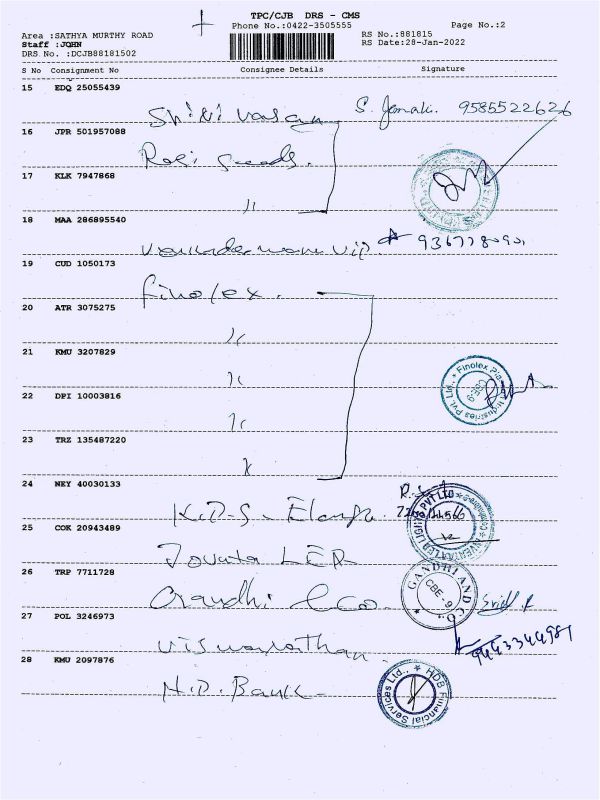 TPC/CJB DRS - CMS
Phone No.:0422-3505555 Page No.:2
Area :SATHYA MURTHY ROAD RS No.:881815
Staff :JOHN RS Date:28-Jan-2022
DRS No. :DCJB88181502
S No Consignment No Consignee Details Signature
15 EDQ 25055439
S. Janaki. 9585522626
16 JPR 501957088
Rasi seeds.
17 KLK 7947868
"
18 MAA 286895540
19 CUD 1050173
Finolex.
20 ATR 3075275
"
21 KMU 3207829
"
Finolex
Industries Pvt. Ltd.,
22 DPI 10003816
"
23 TRZ 135487220
"
24 NEY 40030133
K.P.S.
PVT LTD
25 COK 20943489
26 TRP 7711728
Gandhi & Co.
GANDHI AND CO.
CBE - 9
27 POL 3246973
Viswanathan
9443344987
28 KMU 2097876
H.D. Bank
HDB Financial Services Ltd.,